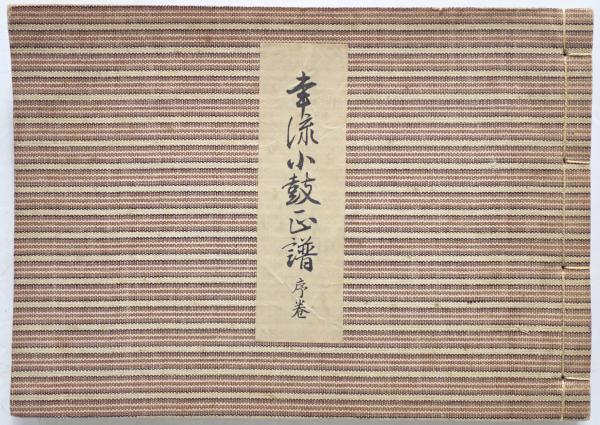 幸流小鼓正譜 序巻